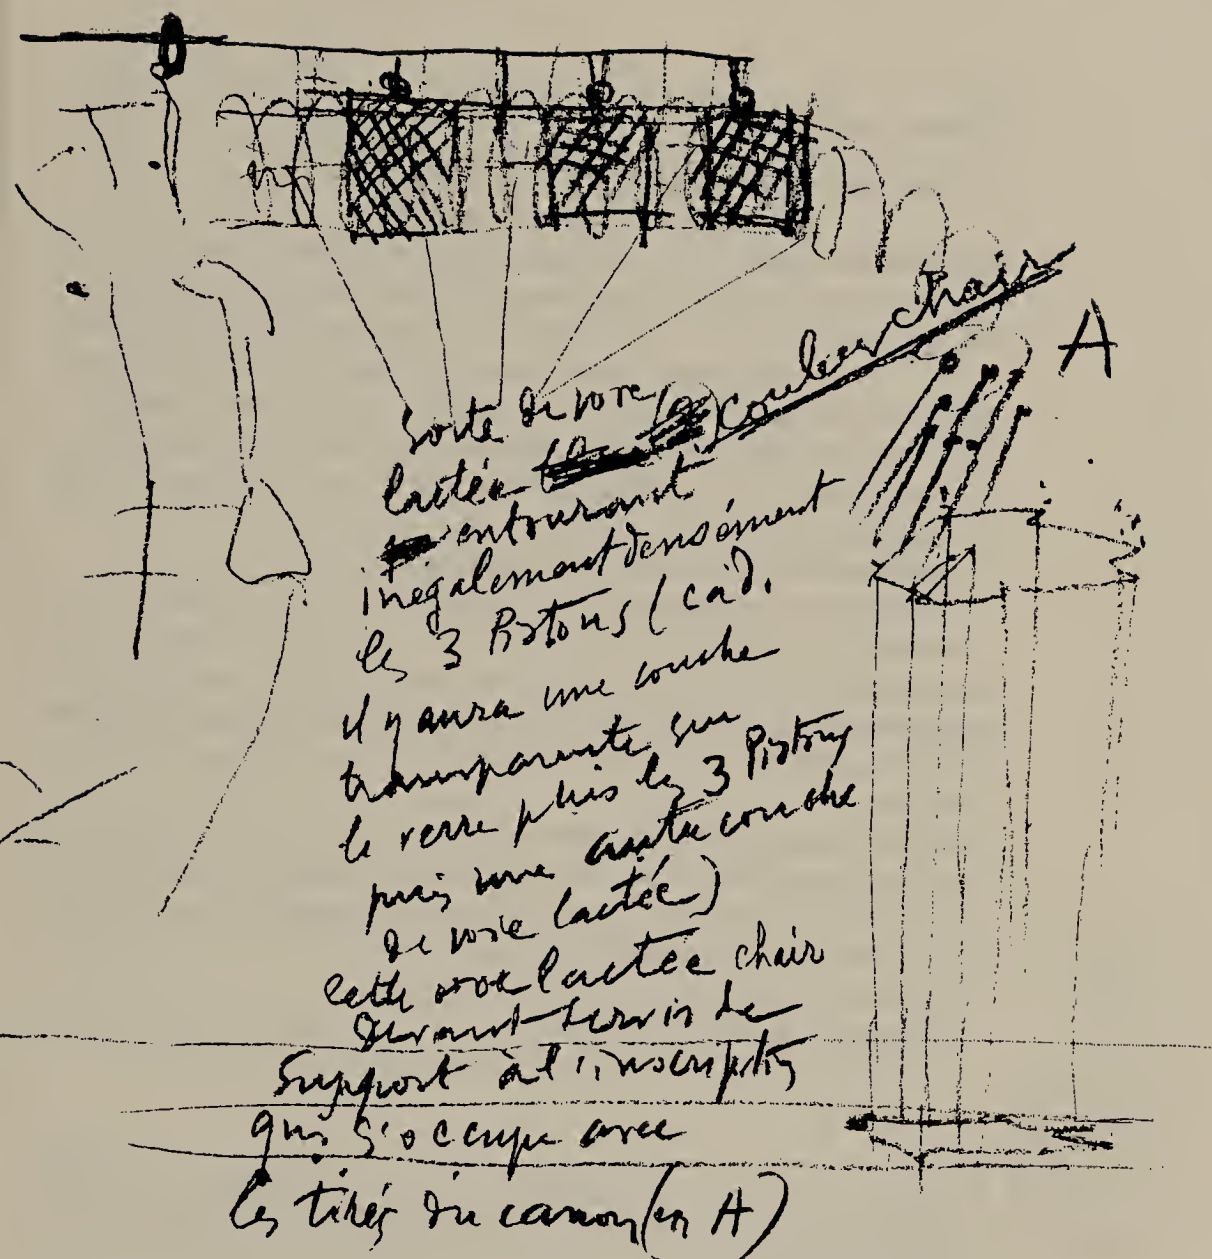 A
Sorte de voie couleur chair
lactée
entourant
inégalement densément
les 3 Pistons (càd.
il y aura une couche
transparente sur
le verre puis les 3 Pistons
puis une autre couche
de voie lactée)
Cette voie lactée chair
devant servir de
Support à l'inscription
qui s'occupe avec
les tirés du canon (en A)